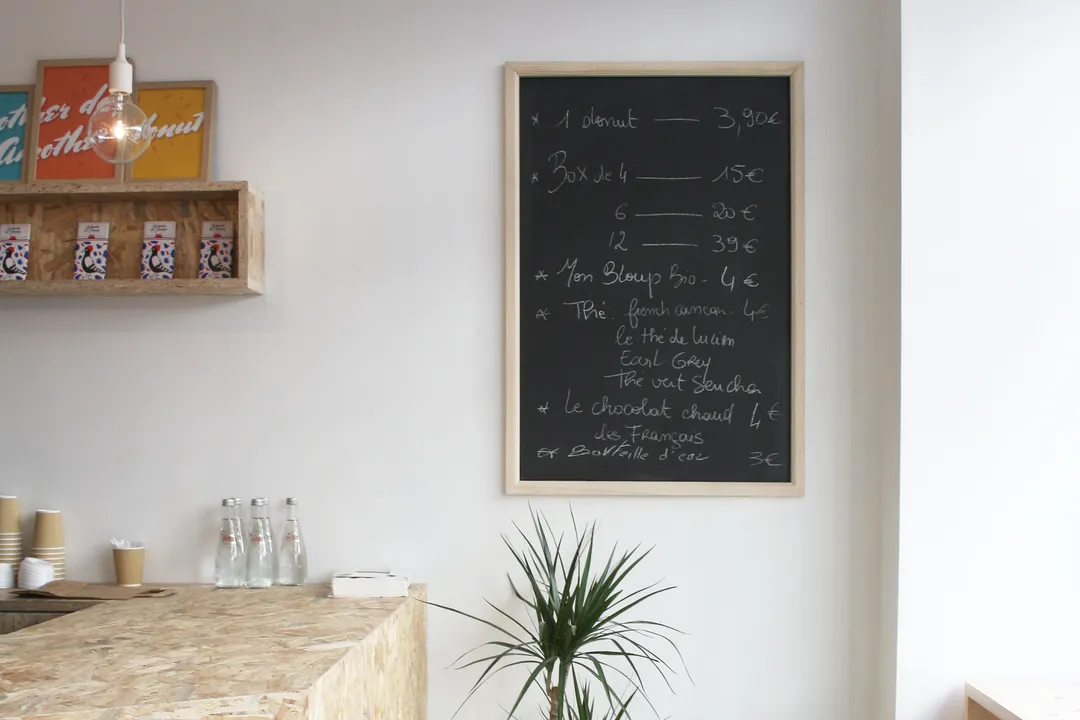 other
Ano
other do
Anothe
donut
* 1 donut — 3,90€
* Box de 4 — 15€
6 — 20€
12 — 39€
* Mon Bloup Bio - 4€
* Thé: french cancan - 4€
le thé de Lucien
Earl Grey
Thé vert Sencha
* Le chocolat chaud 4€
des Français
* Bouteille d'eau 3€